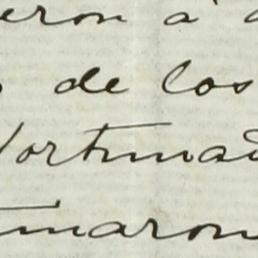 eron á
de los
ortuna
maron